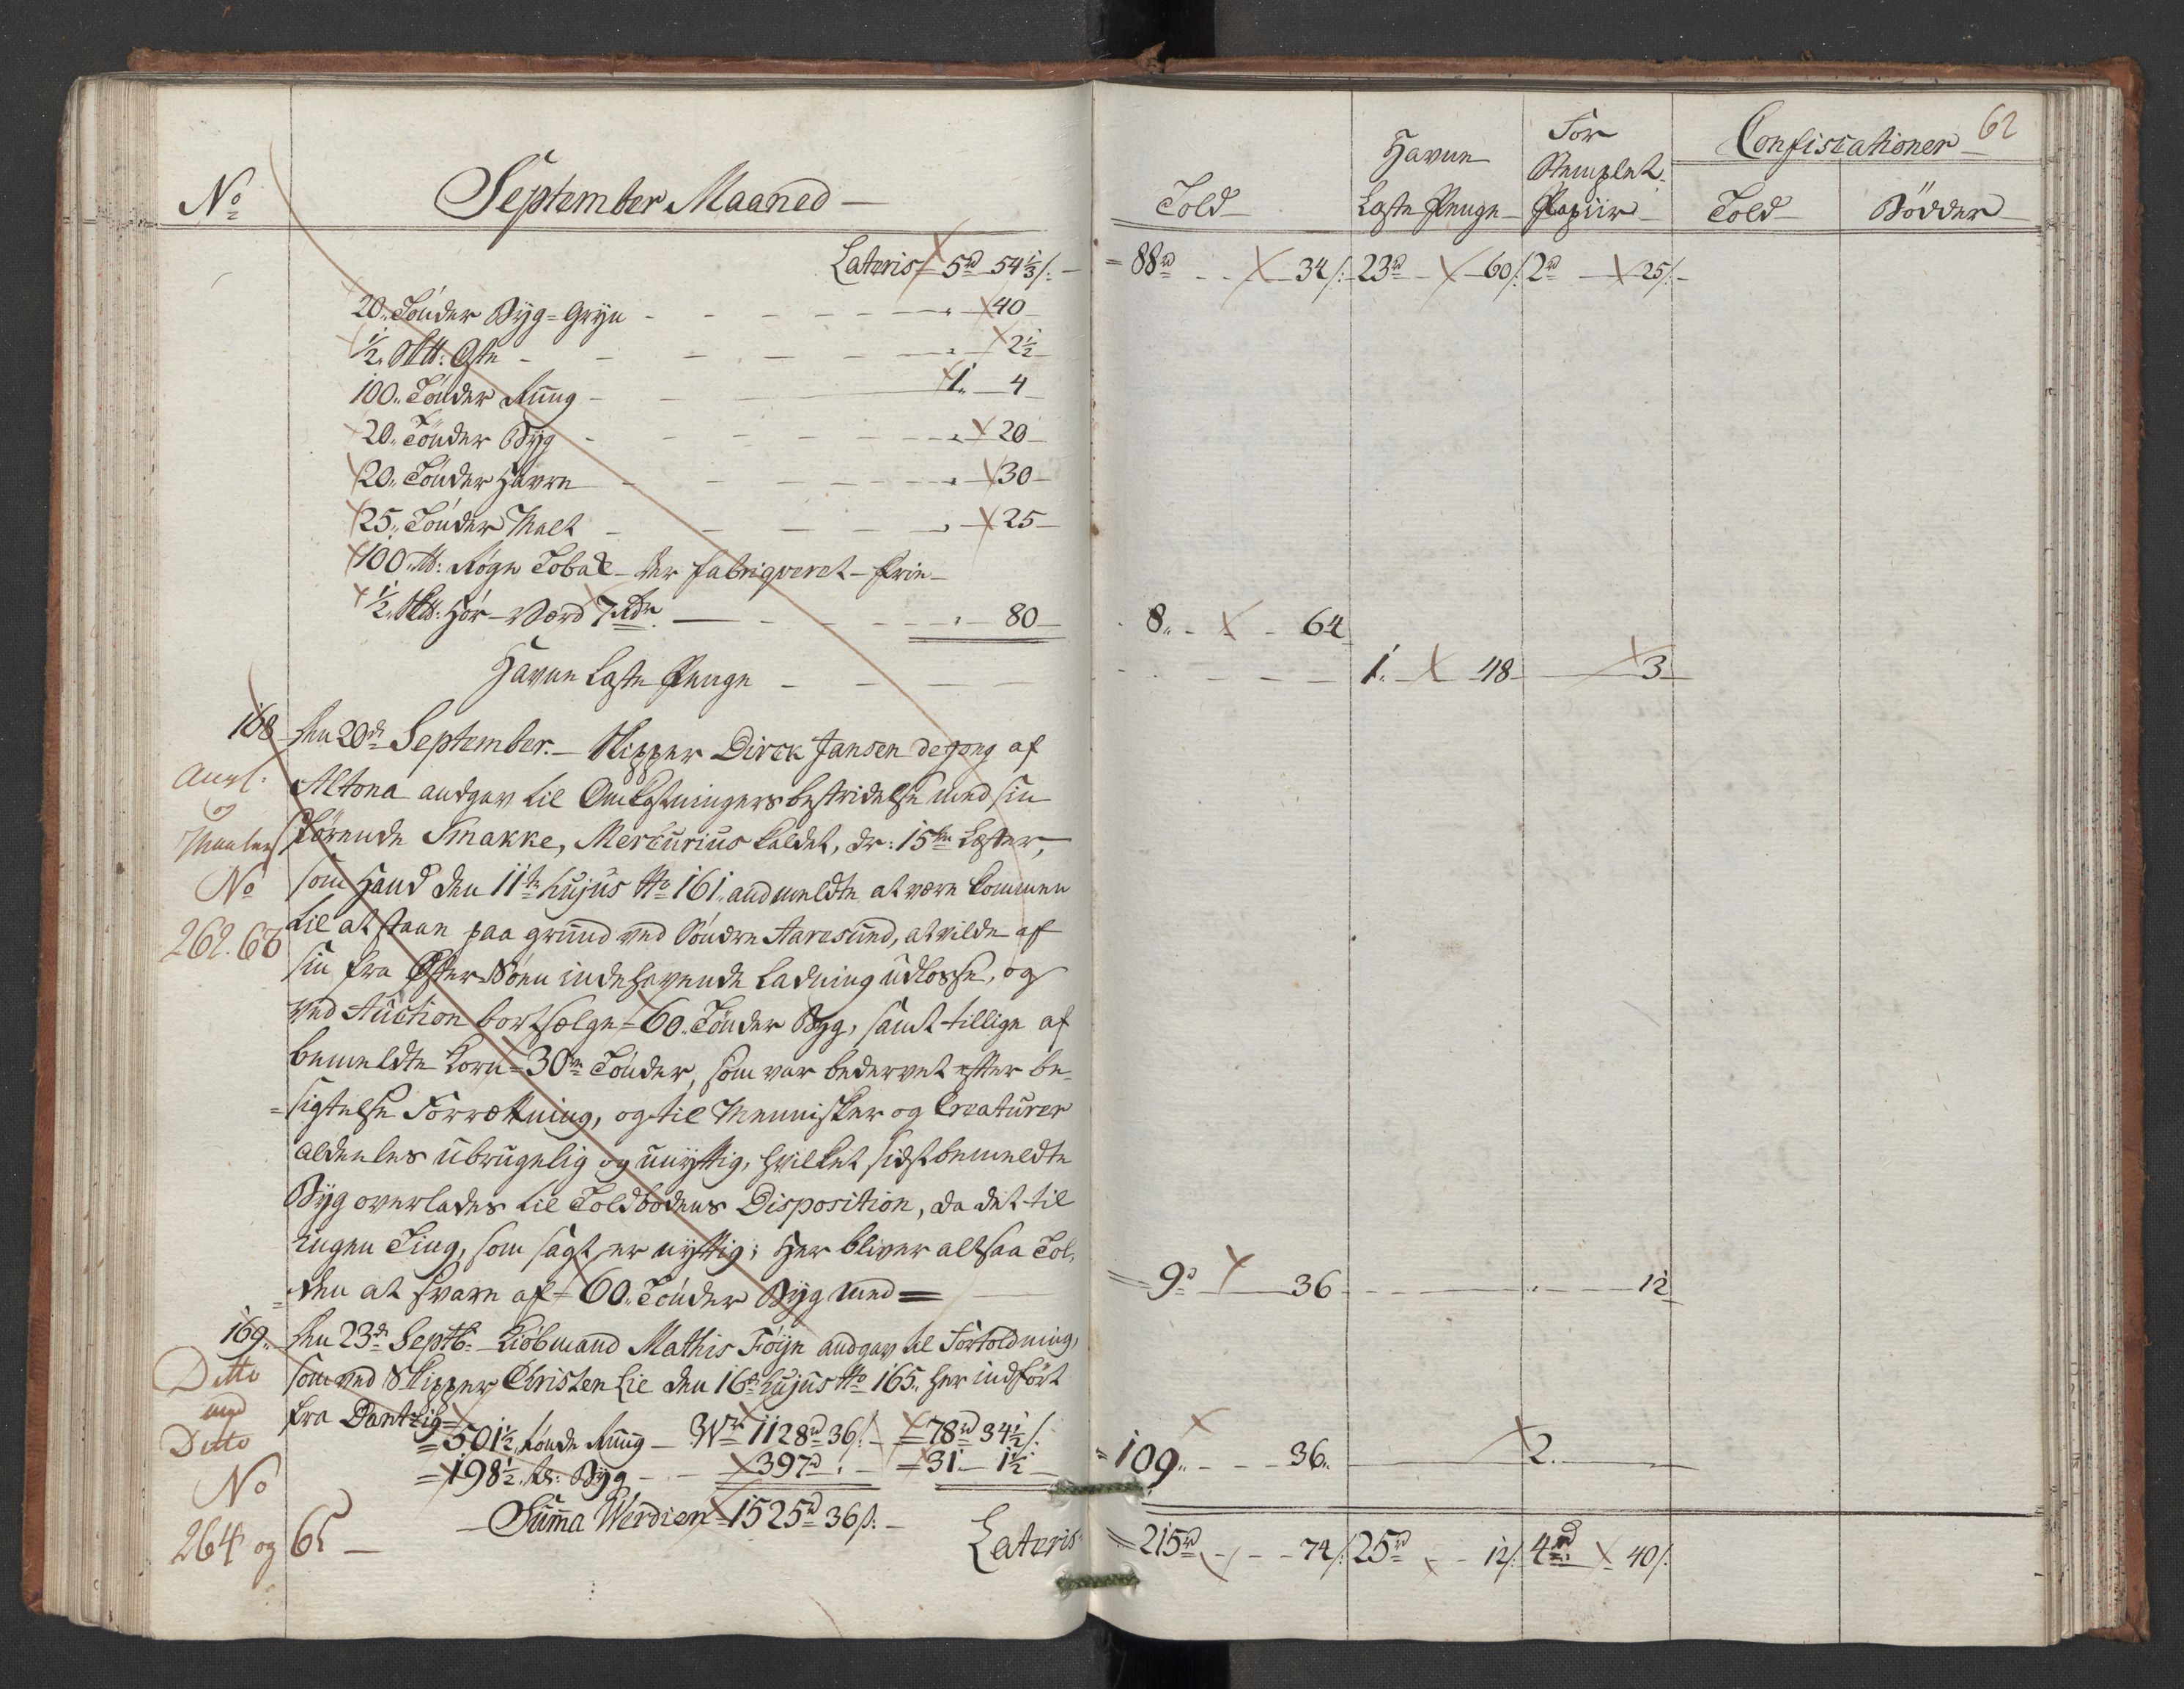 No
September Maaned
Lateris = 5rd 54 1/3 s.
20. Tönder Byg-Gryn - 40
1/2. Sk℔: Oste - 2 1/2
100. Tönder Rŭŭg - 1. 4
20. Tönder Byg - 20
20. Tönder Havre - 30
25. Tönder Malt - 25
100 ℔: Røge Tobak - her fabriqveret - frie
1/2. Sk℔: Hör - Værd 7 rdr. - 80
Havne Laste Penge
168 Den 20de September. - Skipper Dirck Jansen de Jong af
Altona andgav til Omkostningers bestridelse med sin
førende Smakke, Mercŭriŭs kaldet, dr: 15ten Læster,
som Hand den 11te hŭjŭs No 161. andmeldte at være kommen
til at staae paa grŭnd ved Söndre Aaresŭnd, at vilde af
sin fra Øster Söen indehavende Ladning ŭdlosse, og
ved Aŭction bortsælge = 60. Tönder Byg, samt tillige af
bemeldte Korn = 30ve Tönder, som var bedervet efter be-
= sigtelse Forrættning, og til Mennisker og Creatŭrer
aldeeles ŭbrugelig og ŭnÿttig, hvilket sidstbemeldte
Byg overlades til Toldbodens Disposition, da det til
ingen Ting, som sagt, er nÿttig; Her bliver altsaa Tol-
= den at svare af = 60. Tönder Byg med =
Anvl:
og
Maaler
No
262. 63
169. Den 23de Septb: Kiöbmand Mathis Föyn andgav til Fortoldning,
som ved Skipper Christen Lie den 16de hŭjŭs No 165. her indført
fra Dantzig =
= 501 1/2. Tönde Rŭŭg - Wr 1128rd 36 s. = 78rd 34 1/2 s.
= 198 1/2. Tr: Byg - 397rd. = 31 - 1 1/2
- Sŭm̄a Werdien = 1525rd 36 s. -
Lateris
Ditto
med
Ditto
No
264 og 65
62
Told
Havne
Laste Penge
For
Stemplet
Papiir
Confiscationer
Told
Bödder
= 88rd 34 s. 23rd 60 s. 2rd 25 s.
8. 64
1. 48 3
= 9rd 36 12
= 109. 36. 2.
= 215rd 74 s. 25rd 12 s. 4rd 40 s.